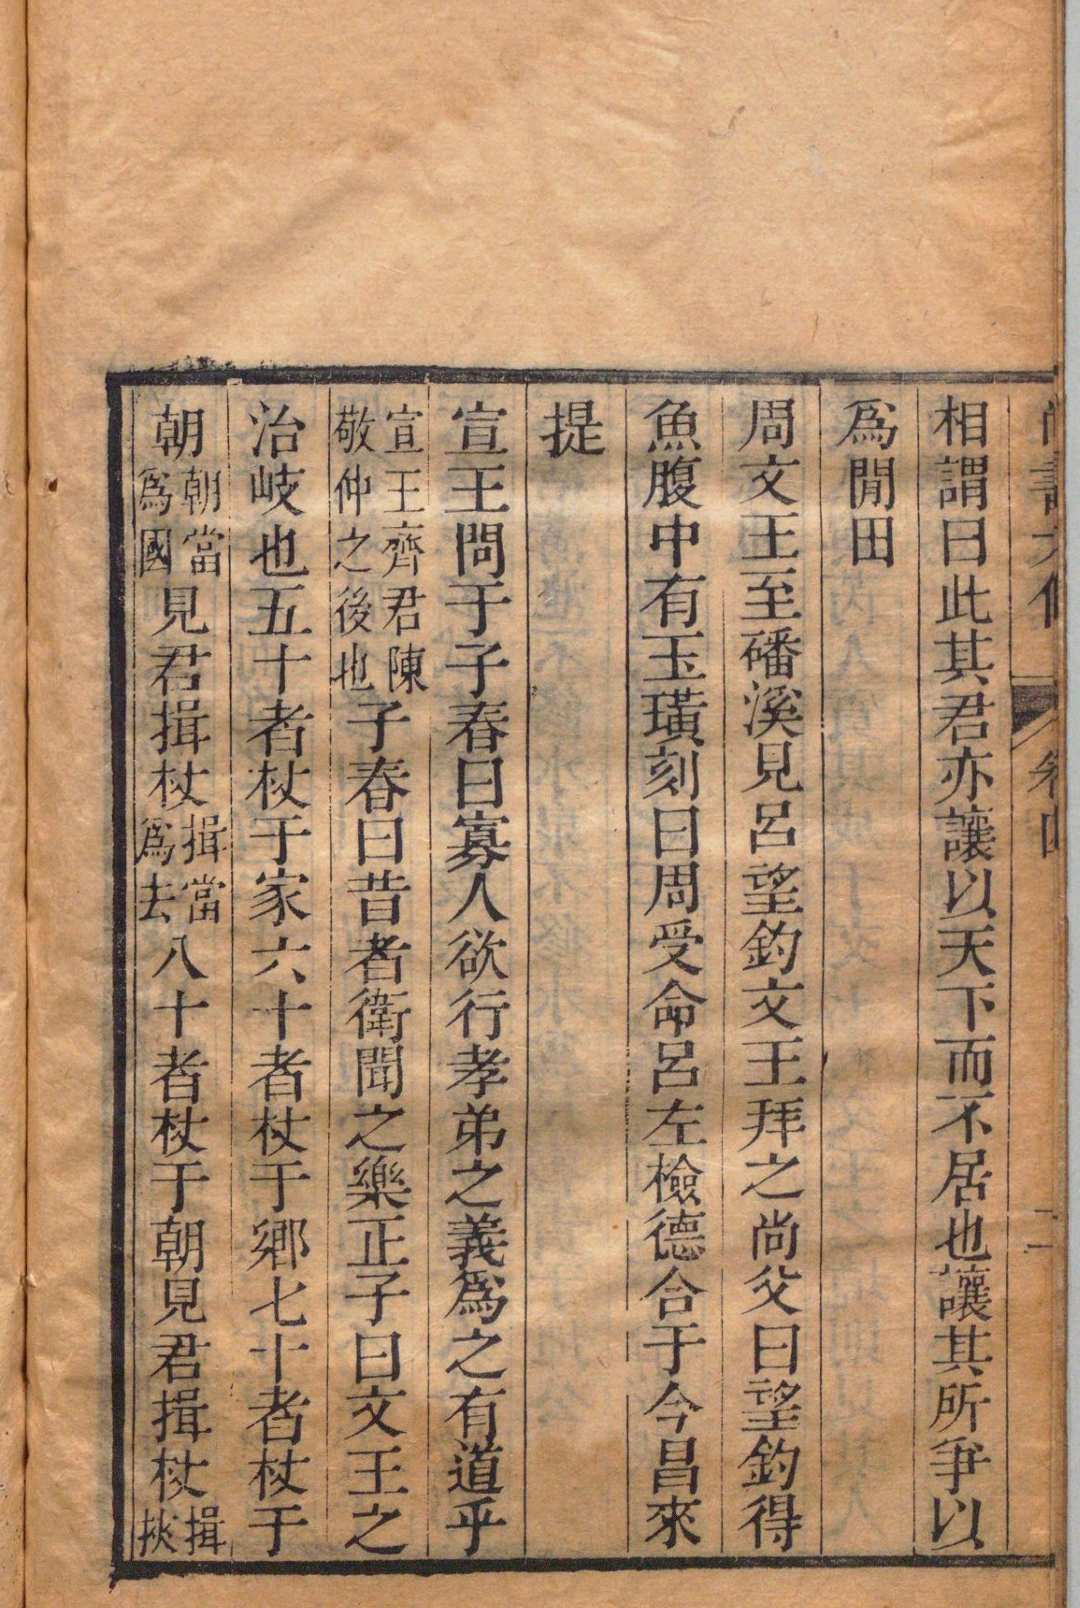 相謂曰此其君亦讓以天下而不居也讓其所爭以
爲閒田
周文王至磻溪見呂望釣文王拜之尚父曰望釣得
魚腹中有玉璜刻曰周受命呂左檢德合于今昌來
提
宣王問于子春曰寡人欲行孝弟之義爲之有道乎
宣王齊君陳敬仲之後也子春曰昔者衛聞之樂正子曰文王之
治岐也五十者杖于家六十者杖于鄉七十者杖于
朝朝當爲國見君揖杖揖當爲去八十者杖于朝見君揖杖揖挾